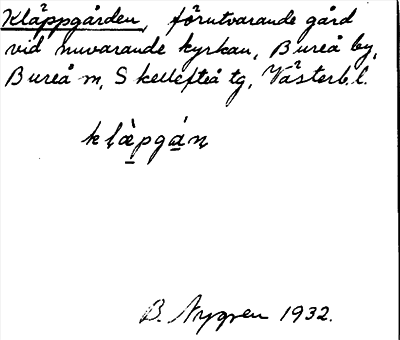 Kläppgården, förutvarande gård
vid nuvarande kyrkan, Bureå by,
Bureå sn, Skellefteå tg, Västerb. l.
klæ̀pgán
B. Nygren 1932.